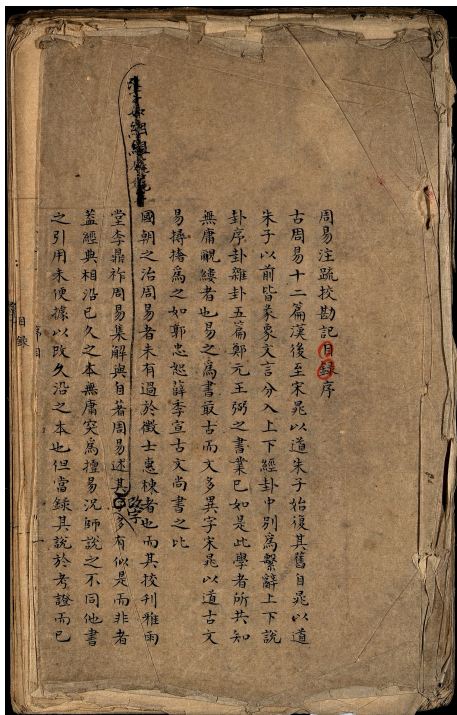 周易注疏挍勘記目錄序
古周易十二篇漢後至宋晁以道朱子始復其舊自晁以道
朱子以前皆彖象文言分入上下經卦中別爲繫辭上下說
卦序卦雜卦五篇鄭元王弼之書業已如是此學者所共知
無庸覼縷者也易之爲書㝡古而文多異字宋晁以道古文
易撏撦爲之如郭忠恕薛季宣古文尚書之比
國朝之治周易者未有過於徵士惠棟者也而其挍刊雅雨
堂李鼎祚周易集解與自著周易述其改字多有似是而非者
蓋經典相沿已久之本無庸突爲擅易況師說之不同他書
之引用未便據以改久沿之本也但當錄其說於考證而已
目錄
序目